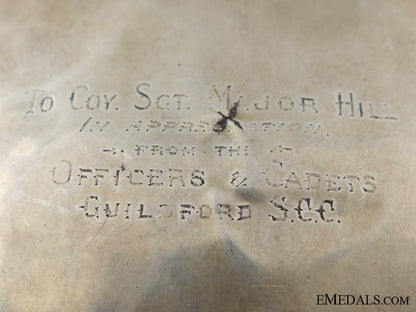 To Coy. Sgt. Major Hill
In Appreciation,
From the
Officers & Cadets
Guildford S.C.C.
eMedals.com